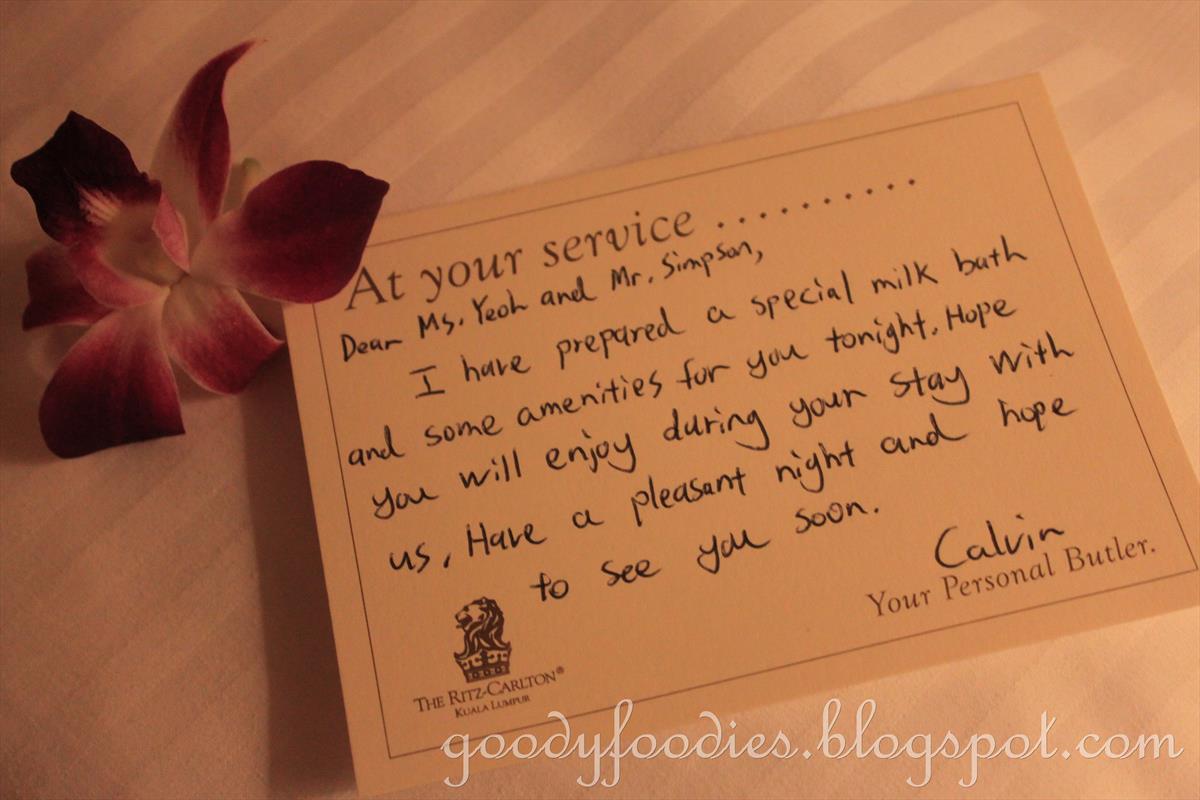 At your service ..........
Dear Ms. Yeoh and Mr. Simpson,
I have prepared a special milk bath
and some amenities for you tonight. Hope
you will enjoy during your stay with
us, Have a pleasant night and hope
to see you soon.
Calvin
Your Personal Butler.
THE RITZ-CARLTON®
KUALA LUMPUR
goodyfoodies.blogspot.com